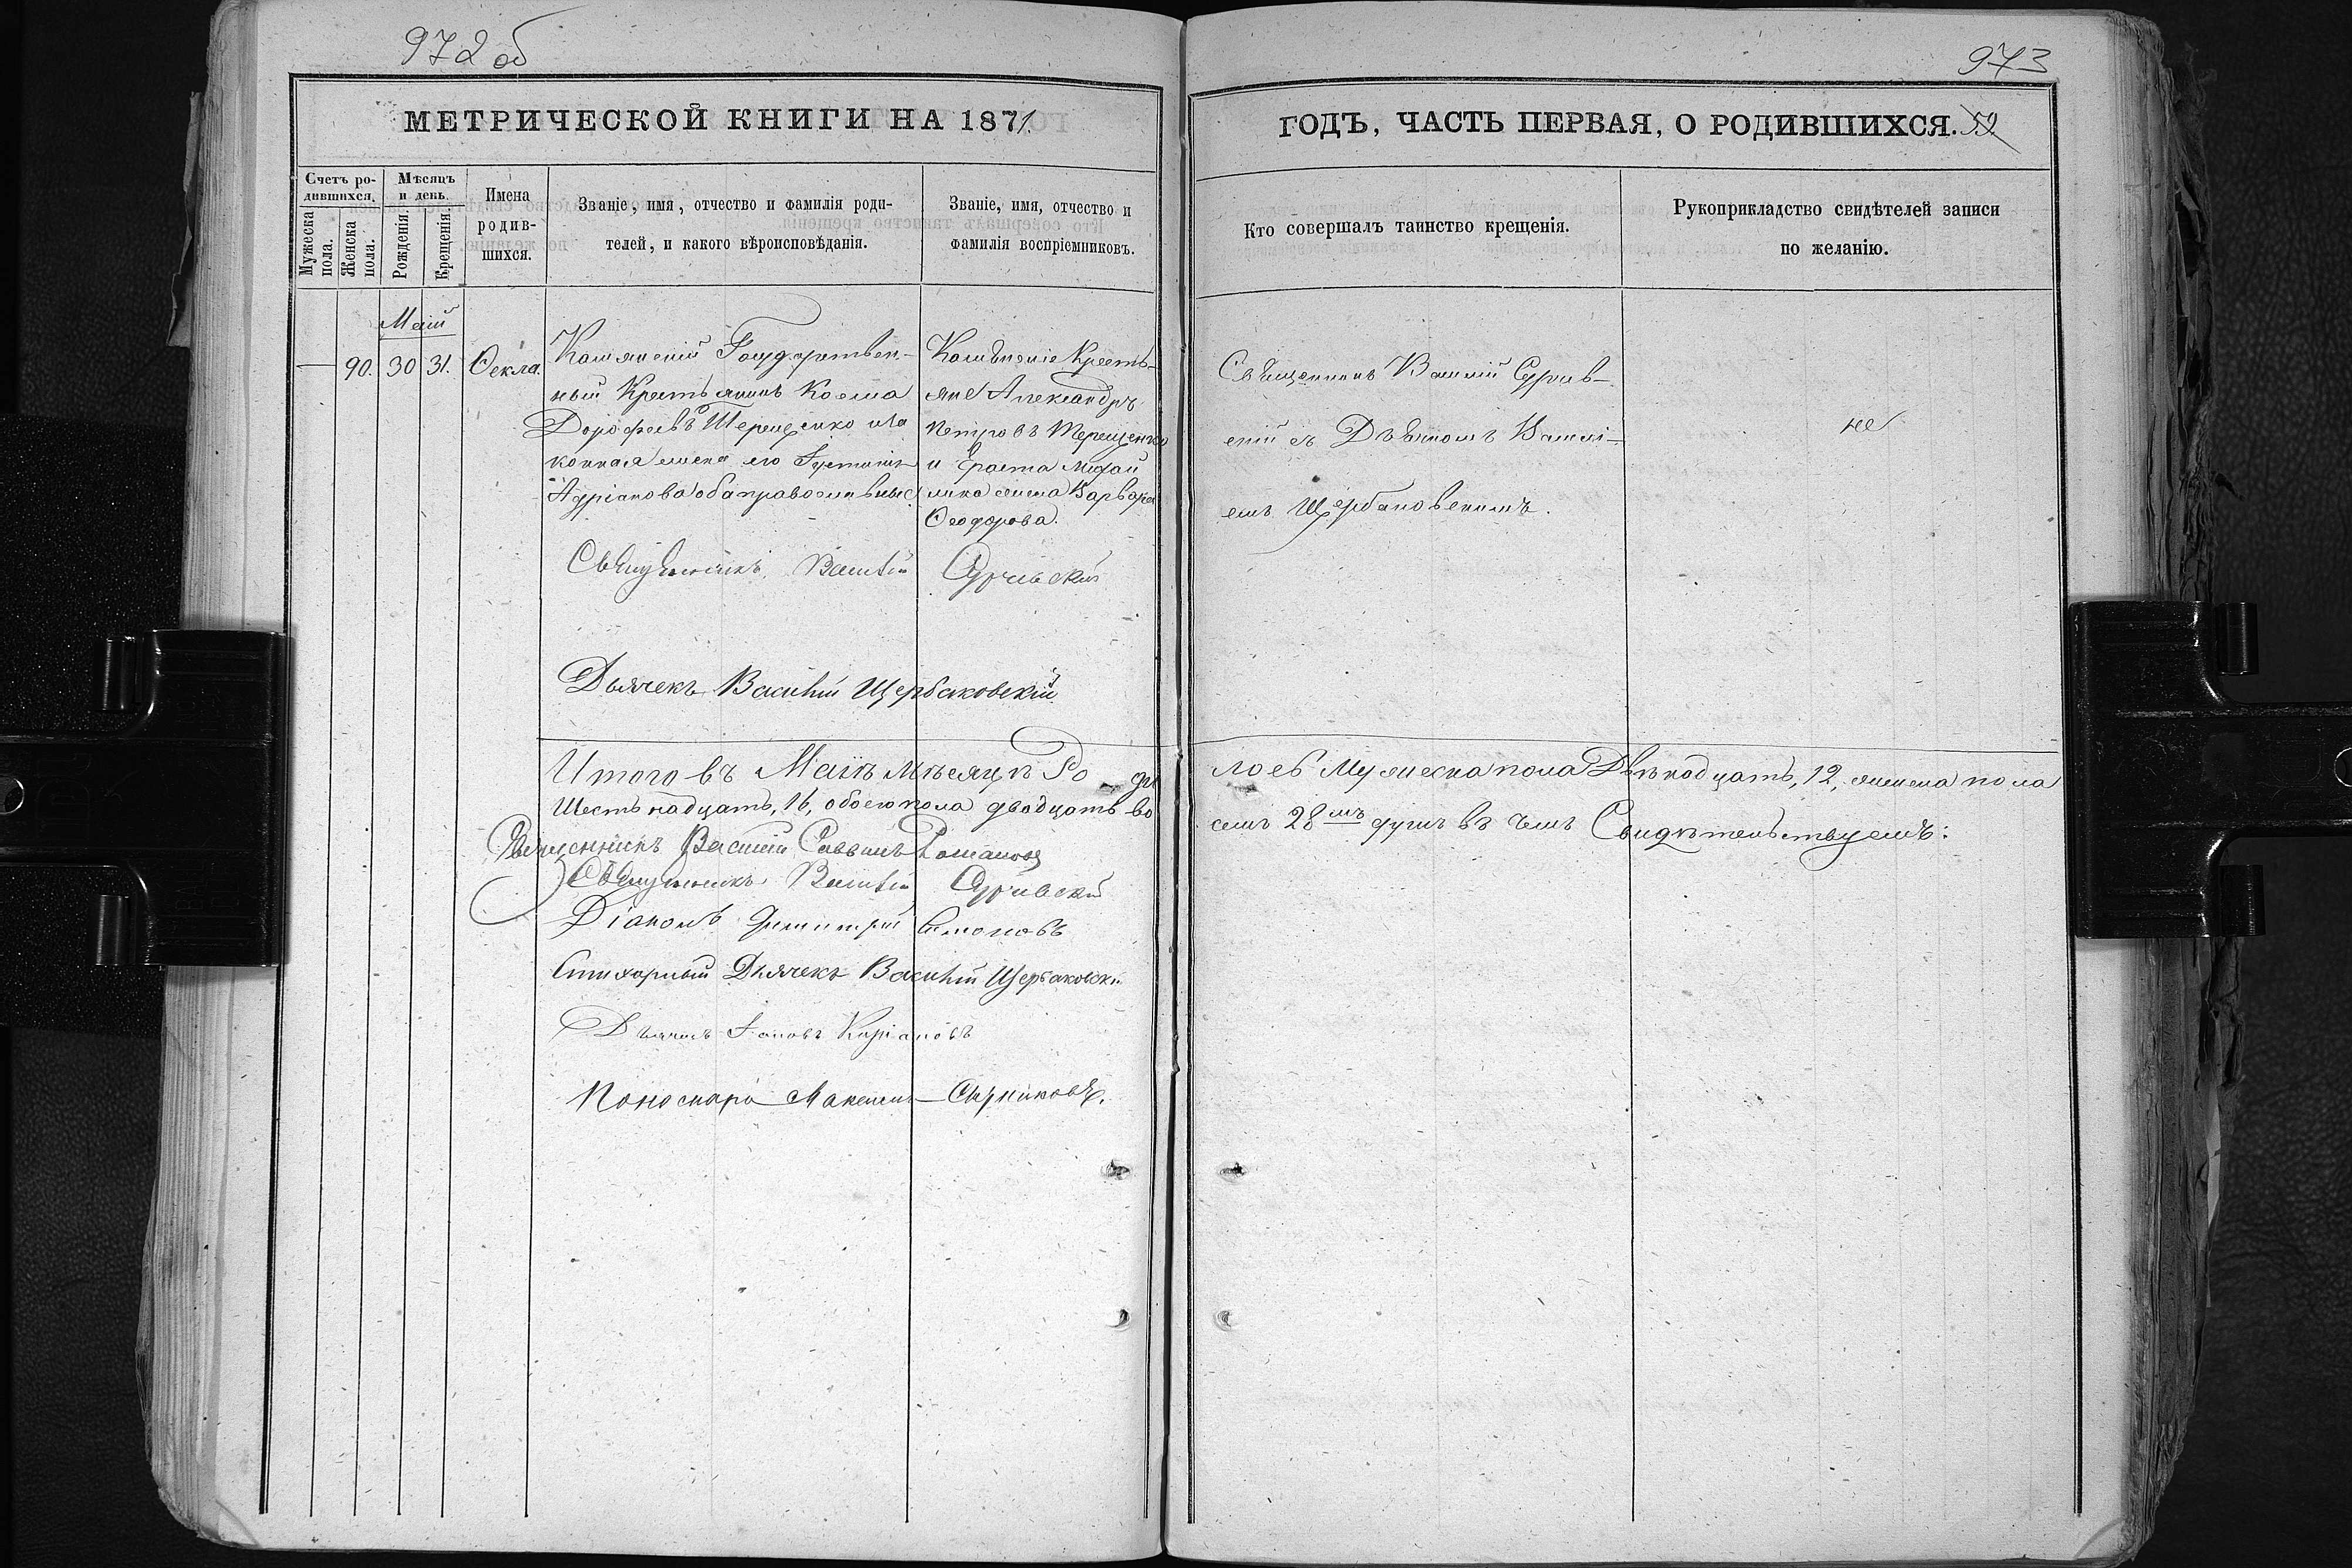 972 об
МЕТРИЧЕСКОЙ КНИГИ НА 1871.
Счетъ ро-
дившихся.
Мѣсяцъ
и день.
Мужеска
пола.
Женска
пола.
Рожденія.
Крещенія.
Имена
родив-
шихся.
Званіе, имя, отчество и фамилія роди-
телей, и какого вѣроисповѣданія.
Званіе, имя, отчество и
фамилія воспріемниковъ.
Маій
— 90. 30 31. Ѳекла.
Государствен-
ный Крестьянинъ Косма
Дорофеевъ Терещенко и за
конная жена его
Адріанова оба православные
Кресть-
яне Александръ
Петровъ Терещенко
и жена Варвара
Ѳеодорова.
Священникъ Василій
Дьячекъ Василій Щербаковскій
Итого въ Маіѣ мѣсяцѣ Ро - ди
Шестьнадцать, 16, обоего пола двадцать во
Священникъ Василій Романовъ
Священникъ Василій
Діаконъ Димитрій Симоновъ
Стихарный Дьячекъ Василій Щербаковскій
Дьячекъ
Пономарь Максимъ Сырниковъ.
973
ГОДЪ, ЧАСТЬ ПЕРВАЯ, О РОДИВШИХСЯ. 52
Кто совершалъ таинство крещенія.
Рукоприкладство свидѣтелей записи
по желанію.
Священникъ Василій
скій съ Дьячкомъ Василі-
емъ Щербаковскимъ.
лось Мужеска пола Двѣнадцать, 12, женска пола
семъ 28 мъ душъ въ чемъ Свидѣтельствуемъ: